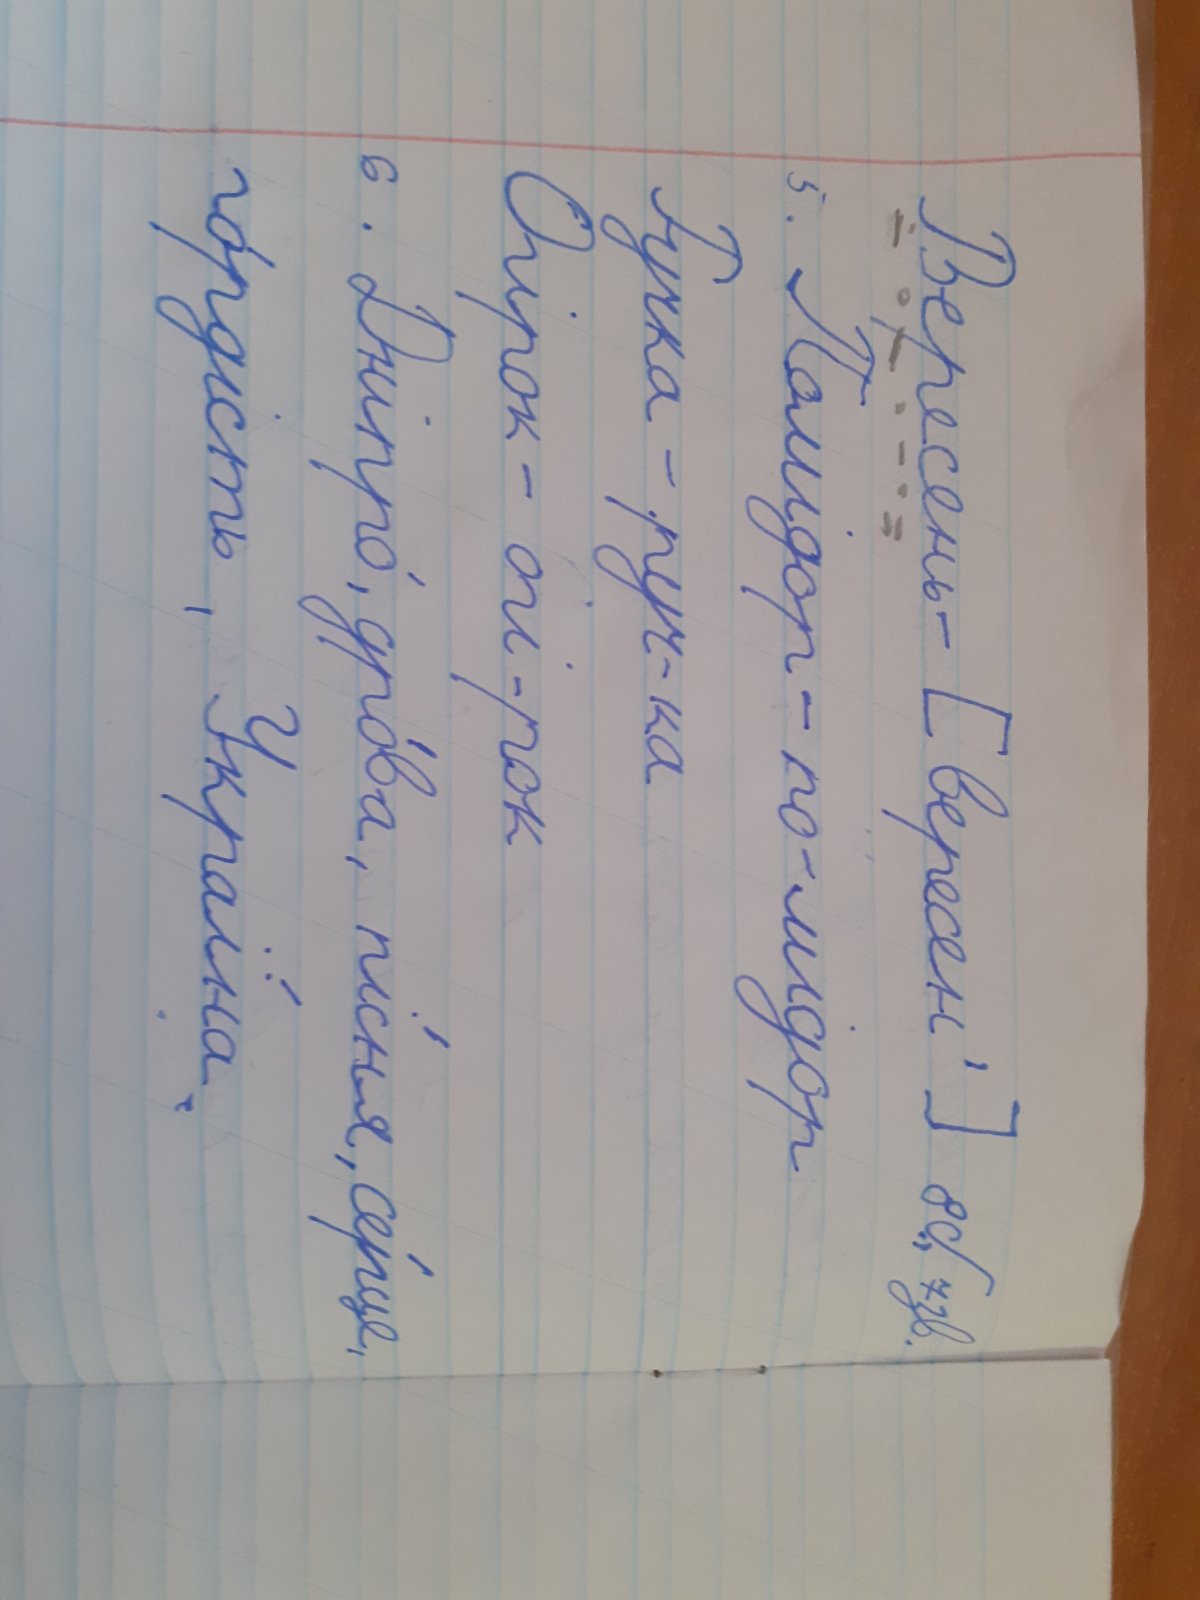 Вересень - [вересен'] 8б., 7 зв.
5. Помідор - по-мідор
Ручка - руч-ка
Огірок - огі-рок
6. Дніпро́, дро́ва, пі́сня, се́рце,
го́рдість, Украї́на.